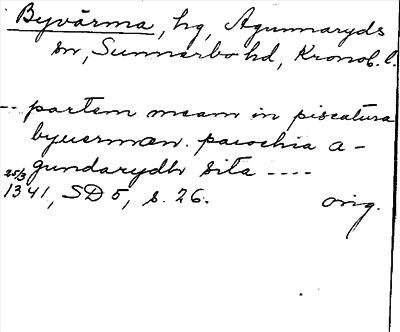 Byvärma, hg, Agunnaryds
sn, Sunnerbo hd, Kronob. l.
-- partem meam in piscatura
byuerman. parochia a-
gundarydh sita ----
25/3 1341, SD 5, s. 26. orig.